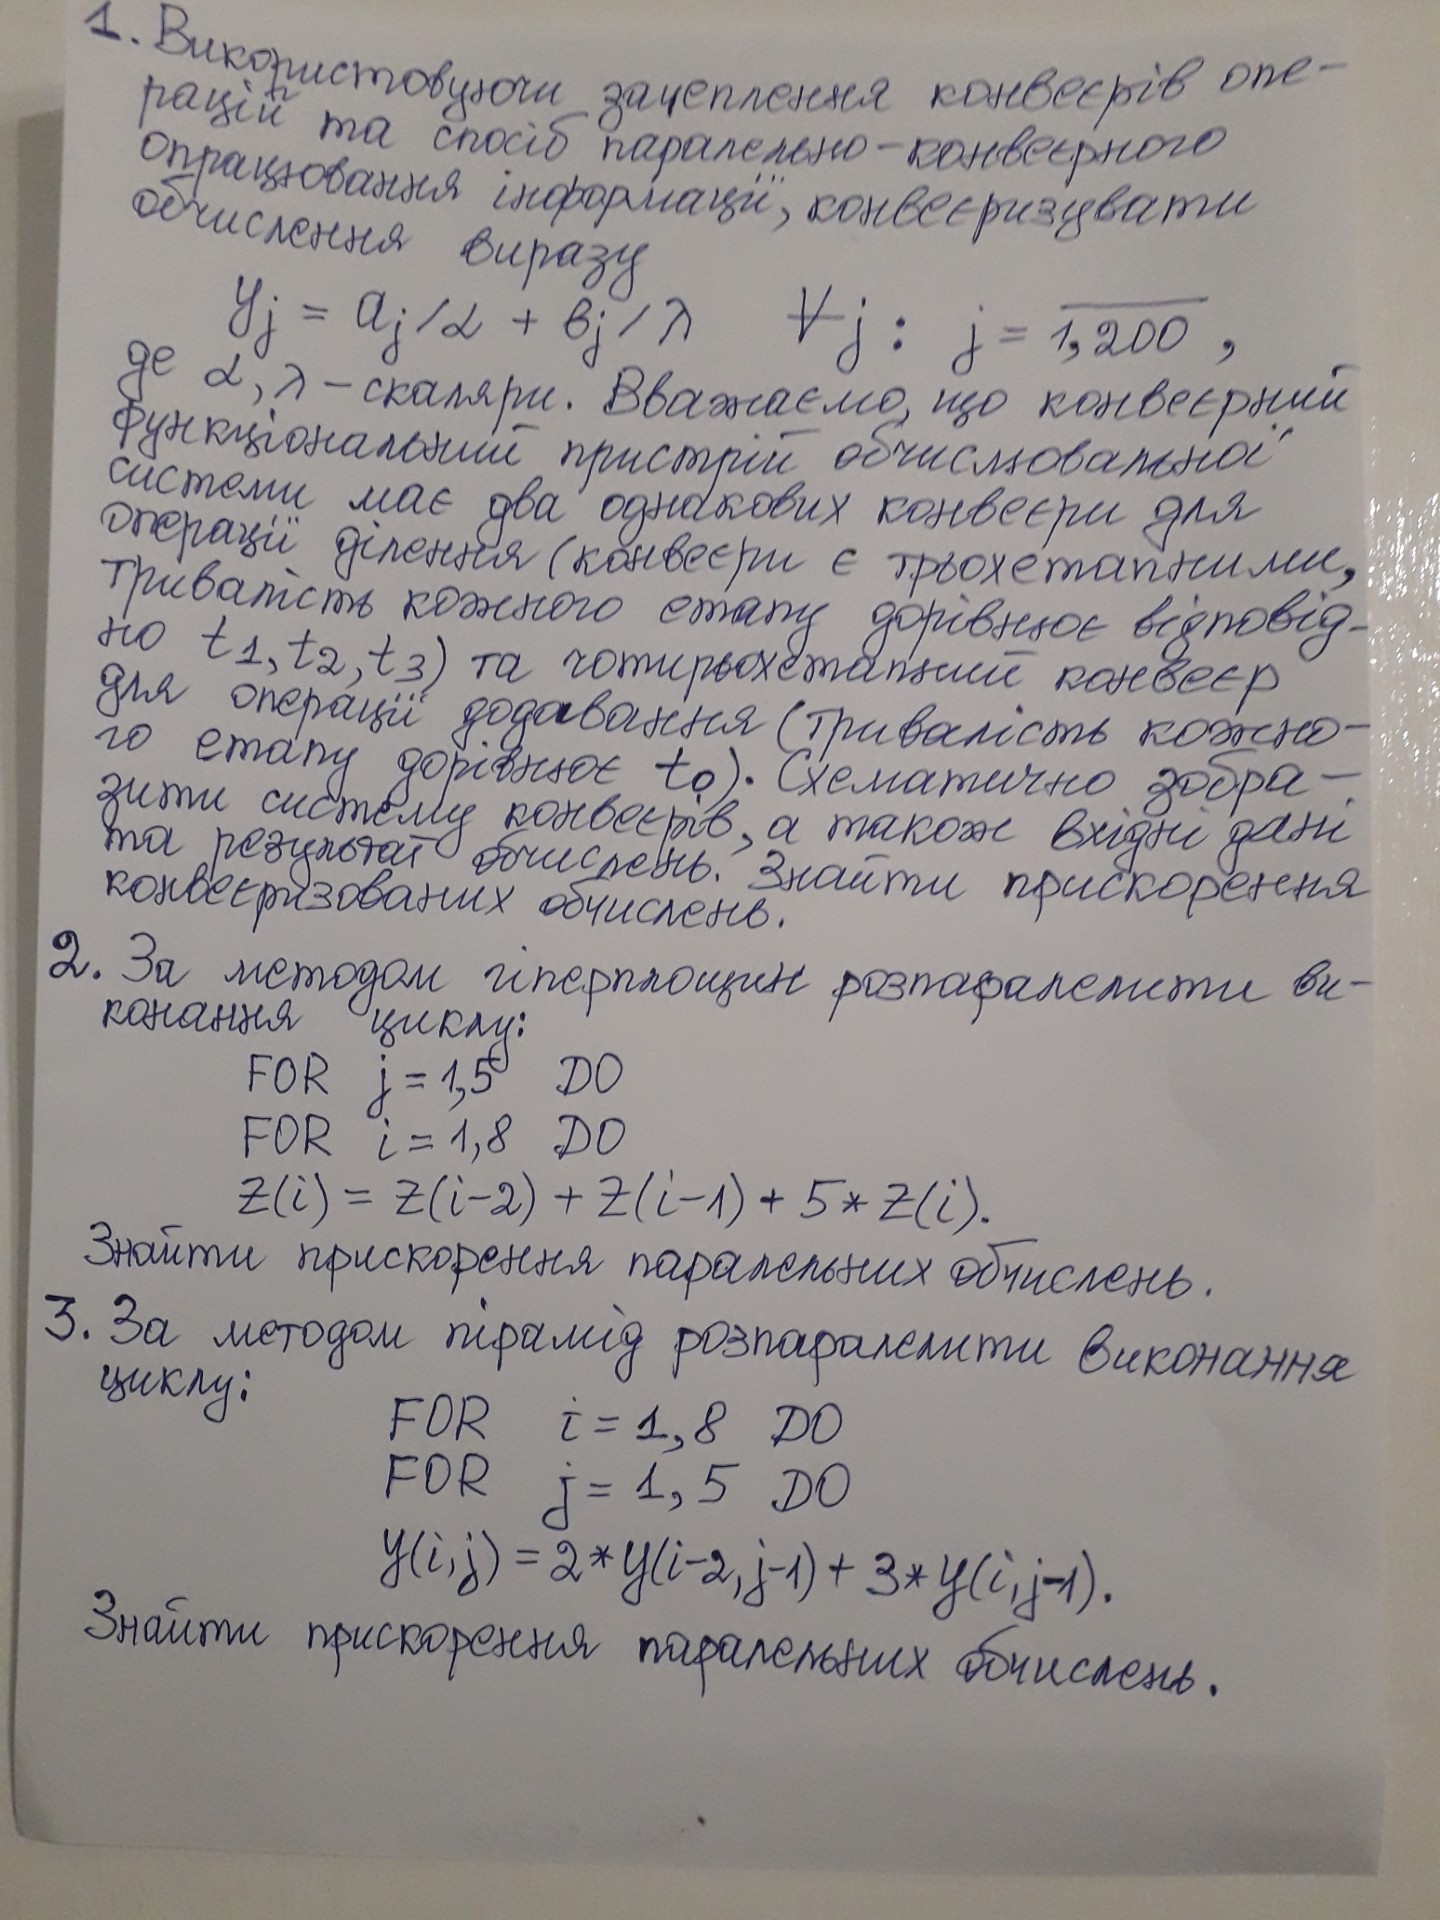 1. Використовуючи зачеплення конвеєрів опе-
рацій та спосіб паралельно-конвеєрного
опрацювання інформації, конвеєризувати
обчислення виразу
yj = aj/α + bj/λ ∀j: j = 1,200,
де α, λ – скаляри. Вважаємо, що конвеєрний
функціональний пристрій обчислювальної
системи має два однакових конвеєри для
операції ділення (конвеєри є трьохетапними,
тривалість кожного етапу дорівнює відповід-
но t1, t2, t3) та чотирьохетапний конвеєр
для операції додавання (тривалість кожно-
го етапу дорівнює t0). Схематично зобра-
зити систему конвеєрів, а також вхідні дані
та результат обчислень. Знайти прискорення
конвеєризованих обчислень.
2. За методом гіперплощин розпаралелити ви-
конання циклу:
FOR j = 1,5 DO
FOR i = 1,8 DO
Z(i) = Z(i-2) + Z(i-1) + 5 * Z(i).
Знайти прискорення паралельних обчислень.
3. За методом пірамід розпаралелити виконання
циклу:
FOR i = 1,8 DO
FOR j = 1,5 DO
y(i,j) = 2 * y(i-2, j-1) + 3 * y(i, j-1).
Знайти прискорення паралельних обчислень.